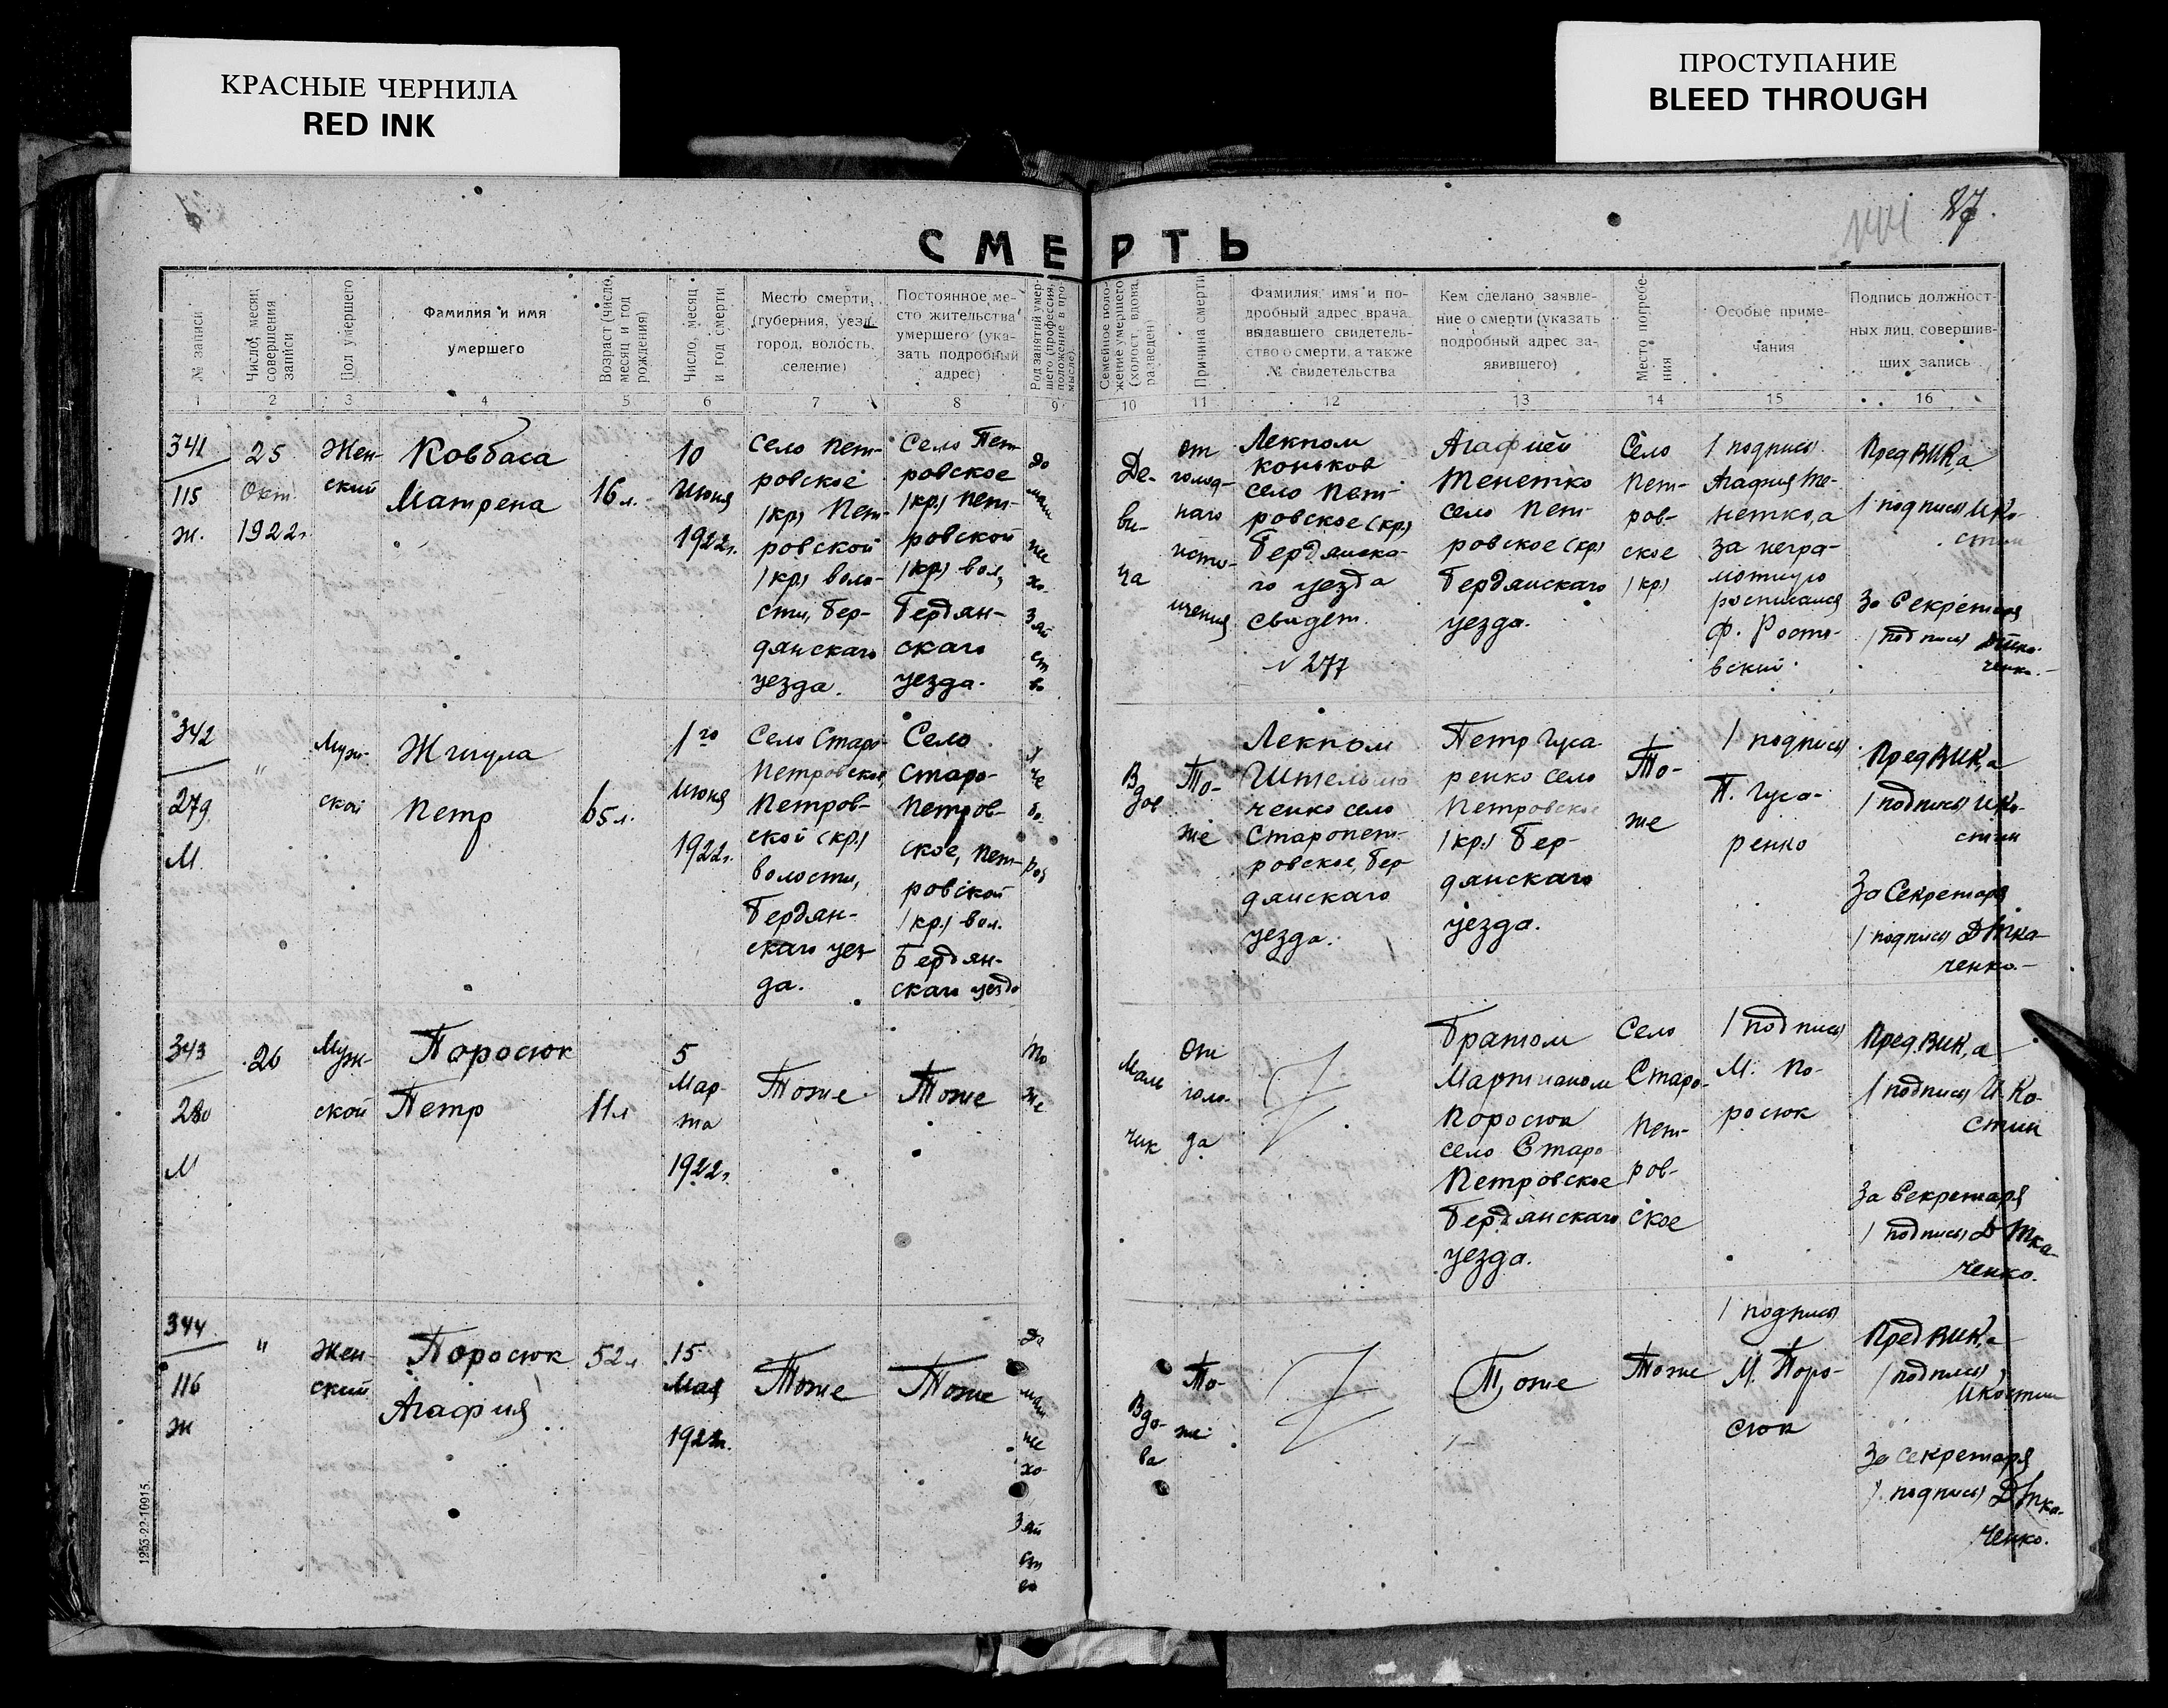 КРАСНЫЕ ЧЕРНИЛА
RED INK
ПРОСТУПАНИЕ
BLEED THROUGH
87.
СМЕРТЬ
№ записи
Число, месяц
совершения
записи
Пол умершего
Фамилия и имя
умершего
Возраст (число,
месяц и год
рождения)
Число, месяц
и год смерти
Место смерти,
(губерния, уезд,
город, волость,
селение)
Постоянное ме-
сто жительства
умершего (ука-
зать подробный
адрес)
Род занятий умер-
шего (профессия,
положение в про-
мысле).
Семейное поло-
жение умершего
(холост, вдова,
разведен)
Причина смерти
Фамилия, имя и по-
дробный адрес врача,
выдавшего свидетель-
ство о смерти, а также
№ свидетельства
Кем сделано заявле-
ние о смерти (указать
подробный адрес за-
явившего)
Место погребе-
ния
Особые приме-
чания
Подпись должност-
ных лиц, совершив-
ших запись
1 2 3 4 5 6 7 8 9 10 11 12 13 14 15 16
341
115
ж.
25
Окт.
1922г.
Жен-
ский
Ковбаса
Матрена
16 л.
10
Июня
1922г.
Село Пет-
ровское
(кр) Пет-
ровской
(кр) воло-
сти, Бер-
дянскаго
уезда.
Село Пет
ровское
(кр.) Пет-
ровской
(кр) вол,
Бердян-
скаго
уезда.
до
маш
нее
хо-
зяй
ст
во
Де-
ви-
ца
от
голод-
наго
исто-
щения
Лекпом
Коньков
село Пет-
ровское (кр.)
Бердянска-
го уезда
Свидет.
№ 277
Агафией
Тенетко
село Пет-
ровское (кр)
Бердянскаго
уезда.
Село
Пет-
ров-
ское
(кр)
(подпись)
Агафия Те-
нетко, а
за негра-
мотную
росписался
Ф. Росто-
вский.
Пред ВИКа
(подпись) И Ко-
стин
За Секретаря
(подпись) Д Тка-
ченко.
342
279
М.
"
Муж-
ской
Жигула
Петр
65 л.
1го
Июня
1922г.
Село Старо
Петровское,
Петров-
ской (кр.)
волости,
Бердян-
скаго уез
да.
Село
Старо-
Петров-
ское, Пет-
ровской
(кр.) вол.
Бердян-
скаго уезда
Вдов
То-
же
Лекпом
ченко село
Старопет-
ровское, Бер
дянскаго
уезда.
Петр Гуса
ренко село
Петровское
(кр.) Бер-
дянскаго
уезда.
То-
же
(подпись)
П. Гуса-
ренко
Пред ВИК,а
(подпись) И Ко-
стин
За Секретаря
(подпись) Д Тка-
ченко.
343
280
М
26
Муж-
ской
Поросюк
Петр
11 л
5
Мар-
та
1922г.
Тоже
Тоже
То
же
Маль
чик
От
голо-
да
Братом
Мартианом
Поросюк
село Старо
Петровское
Бердянскаго
уезда.
Село
Старо-
Пет-
ров-
ское
(подпись)
М. По-
росюк
Пред. ВИК,а
(подпись) И. Ко-
стин
За Секретаря
(подпись) Д Тка-
ченко.
344
116
ж
"
Жен-
ский
Поросюк
Агафия
52 л
15
Мая
1922г.
Тоже
Тоже
до
маш
нее
хо-
зяй
ст
во
Вдо-
ва
То-
же
Тоже
Тоже
(подпись)
М. Поро-
сюк
Пред ВИК,а
(подпись)
И Костин
За секретаря
(подпись) Д Тка-
ченко.
1253-22-10915.